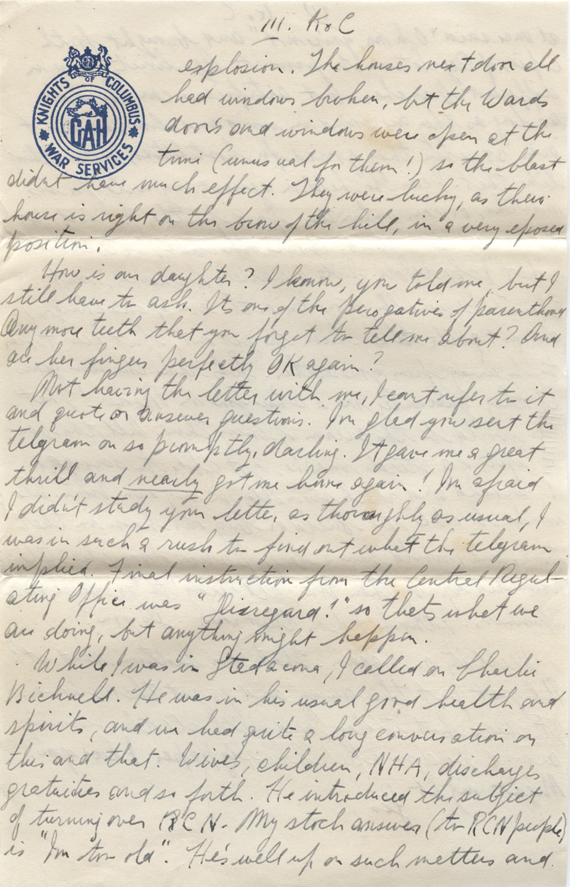 III. K of C
KNIGHTS OF COLUMBUS
CAH
WAR SERVICES
explosion. The houses next door all
had windows broken, but the Wards
doors and windows were open at the
time (unusual for them!) so the blast
didn't have much effect. They were lucky, as their
house is right on the brow of the hill, in a very eposed
position.
How is our daughter? I know, you told me, but I
still have to ask. Its one of the perogatives of parenthood
Any more teeth that you forgot to tell me about? And
are her fingers perfectly OK again?
Not having the letter with me, I cant refer to it
and quote or answer questions. I'm glad you sent the
telgram on so promptly, darling. It gave me a great
thrill and nearly got me home again! I'm afraid
I didn't study your letter as thoroughly as usual, I
was in such a rush to find out what the telegram
implied. Final instruction from the Central Regul-
ating Office was "Disregard!" so thats what we
are doing, but anything might happen.
While I was in Stadacona, I called on Charlie
Bicknell. He was in his usual good health and
spirits, and we had quite a long conversation on
this and that. Wives, children, NHA, discharges
gratuities and so forth. He introduced the subject
of turning over RCN. My stock answer (to RCN people)
is "I'm too old". He's well up on such matters and